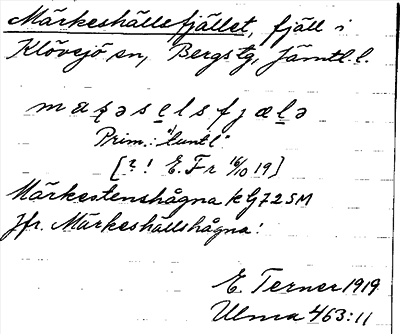 Märkeshällsfjället, fjäll i
Klövsjö sn, Bergs tg, Jämtl. l.
Prim.: "luntl"
[?! E. Fr 16/10 19]
Märkestenshågna kG725M
Jfr. Märkeshällshågna!
E. Terner 1919
Ulma 463:11